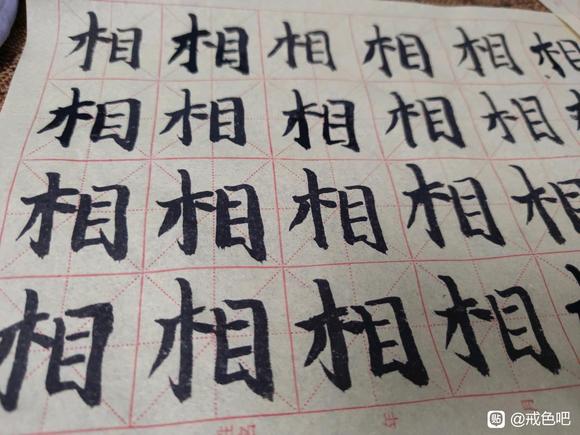 相相相相相相
相相相相相
相相相相相
相相相相
姓名 年 月
贴 @戒色吧